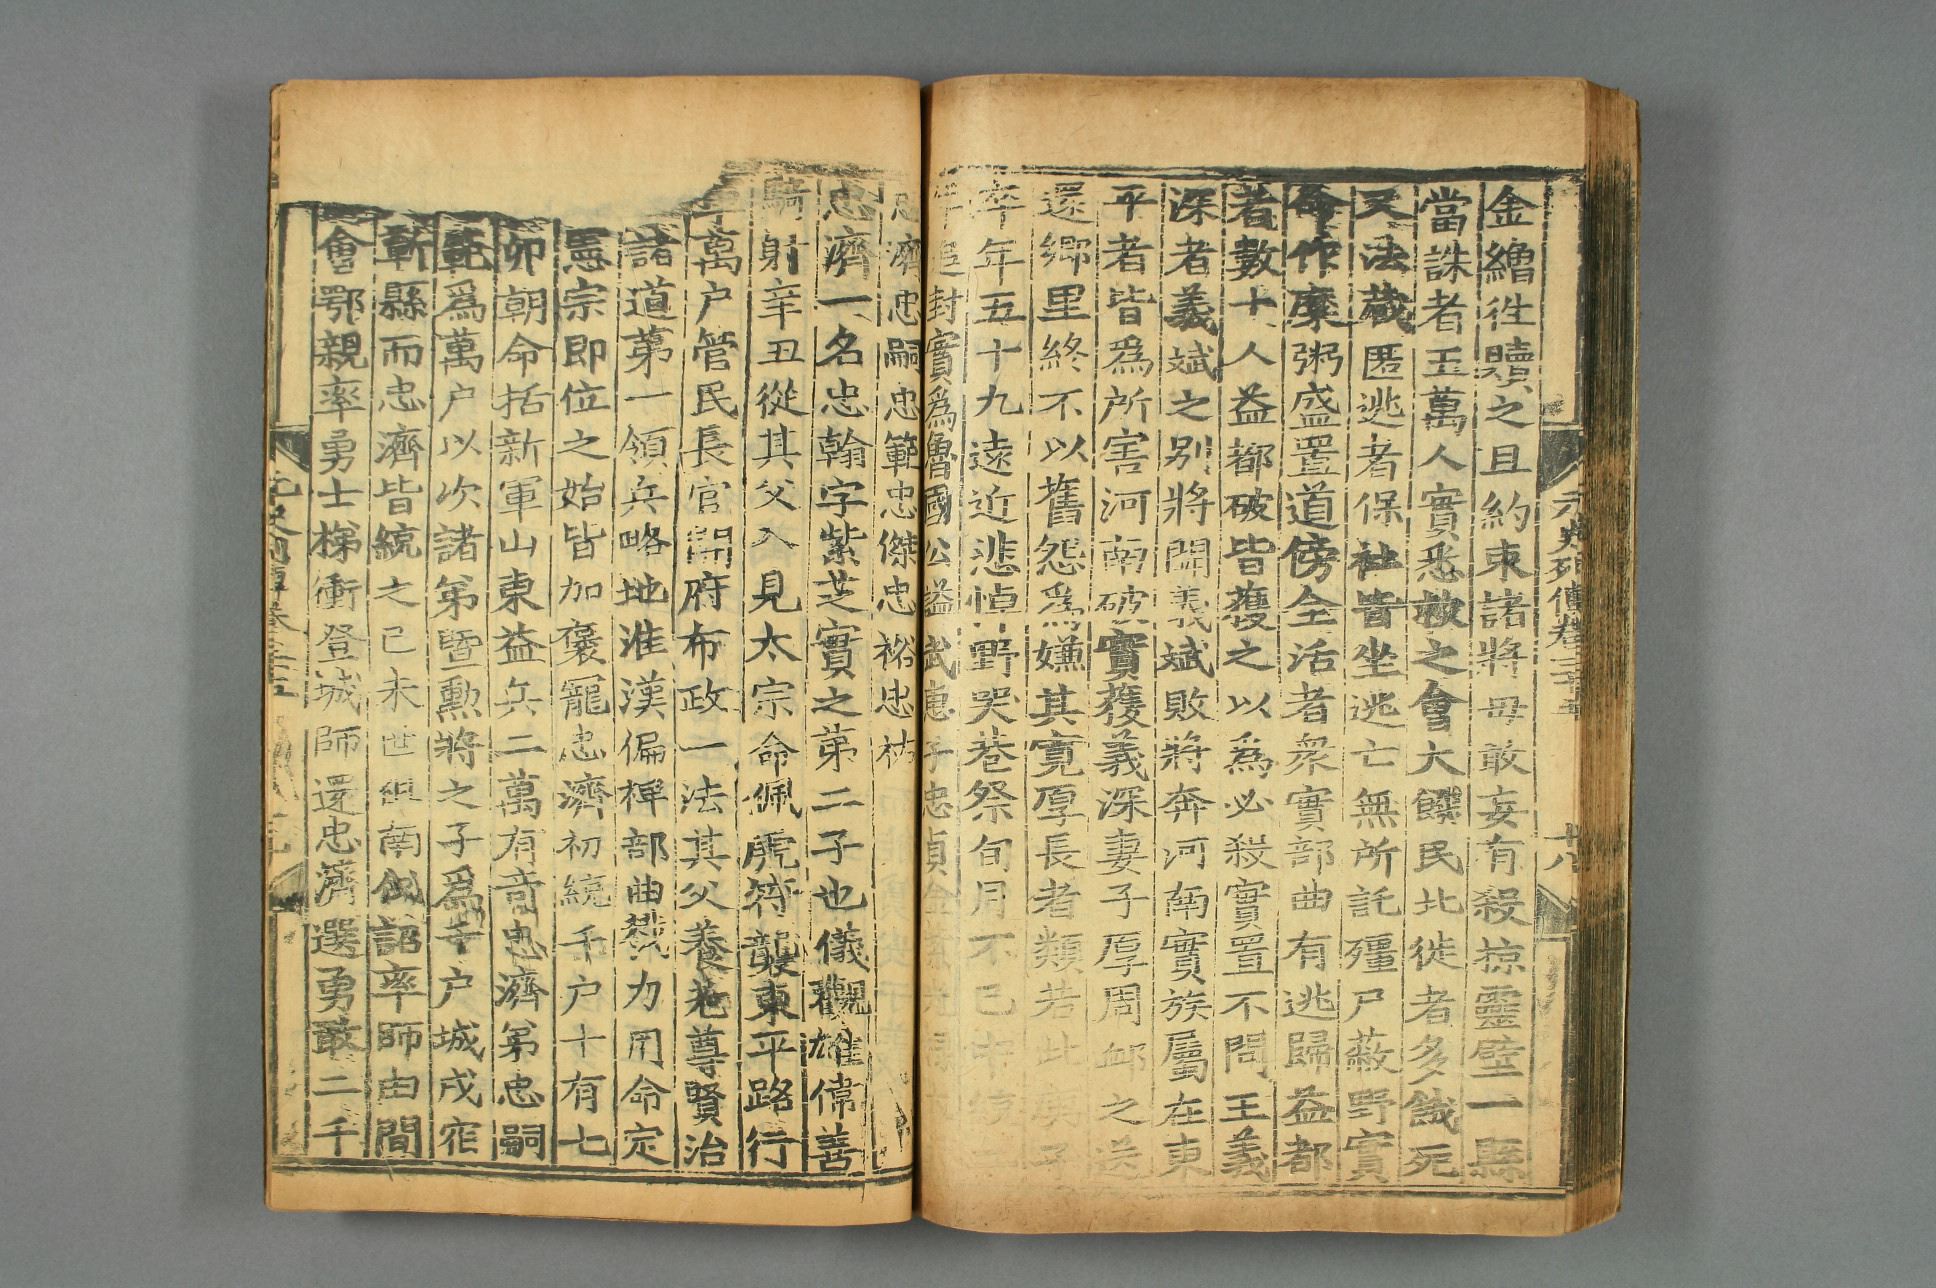 元史列傳卷三十五
十八
金繒往贖之且約束諸將毋敢妄有殺掠靈壁一縣
當誅者五萬人實悉赦之會大饑民北徙者多餓死
又法藏匿逃者保社皆坐逃亡無所託殭尸蔽野實
命作糜粥盛置道傍全活者衆實部曲有逃歸益都
者數十人益都破皆獲之以為必殺實置不問王義
深者義斌之別將聞義斌敗將奔河南實族屬在東
平者皆爲所害河南破實獲義深妻子厚周䘏之送
還鄉里終不以舊怨爲嫌其寛厚長者類若此庚子
卒年五十九遠近悲悼野哭巷祭旬月不已中統二
年追封實爲魯國公謚武惠子忠貞金紫光祿
忠濟忠嗣忠範忠傑忠裕忠祐
忠濟一名忠翰字紫芝實之第二子也儀觀雄偉善
騎射辛丑從其父入見太宗命佩虎符襲東平路行
軍萬户管民長官開府布政一法其父養老尊賢治
諸道第一領兵略地淮漢偏裨部曲戮力用命定
憲宗即位之始皆加褒寵忠濟初統千户十有七
卯朝命括新軍山東益兵二萬有竒忠濟弟忠嗣
範爲萬户以次諸弟曁勲將之子爲千户城戍宿
蘄縣而忠濟皆統之己未世祖南伐詔率師由間
會鄂親率勇士梯衝登城師還忠濟選勇敢二千
元史列傳卷三十五
十九